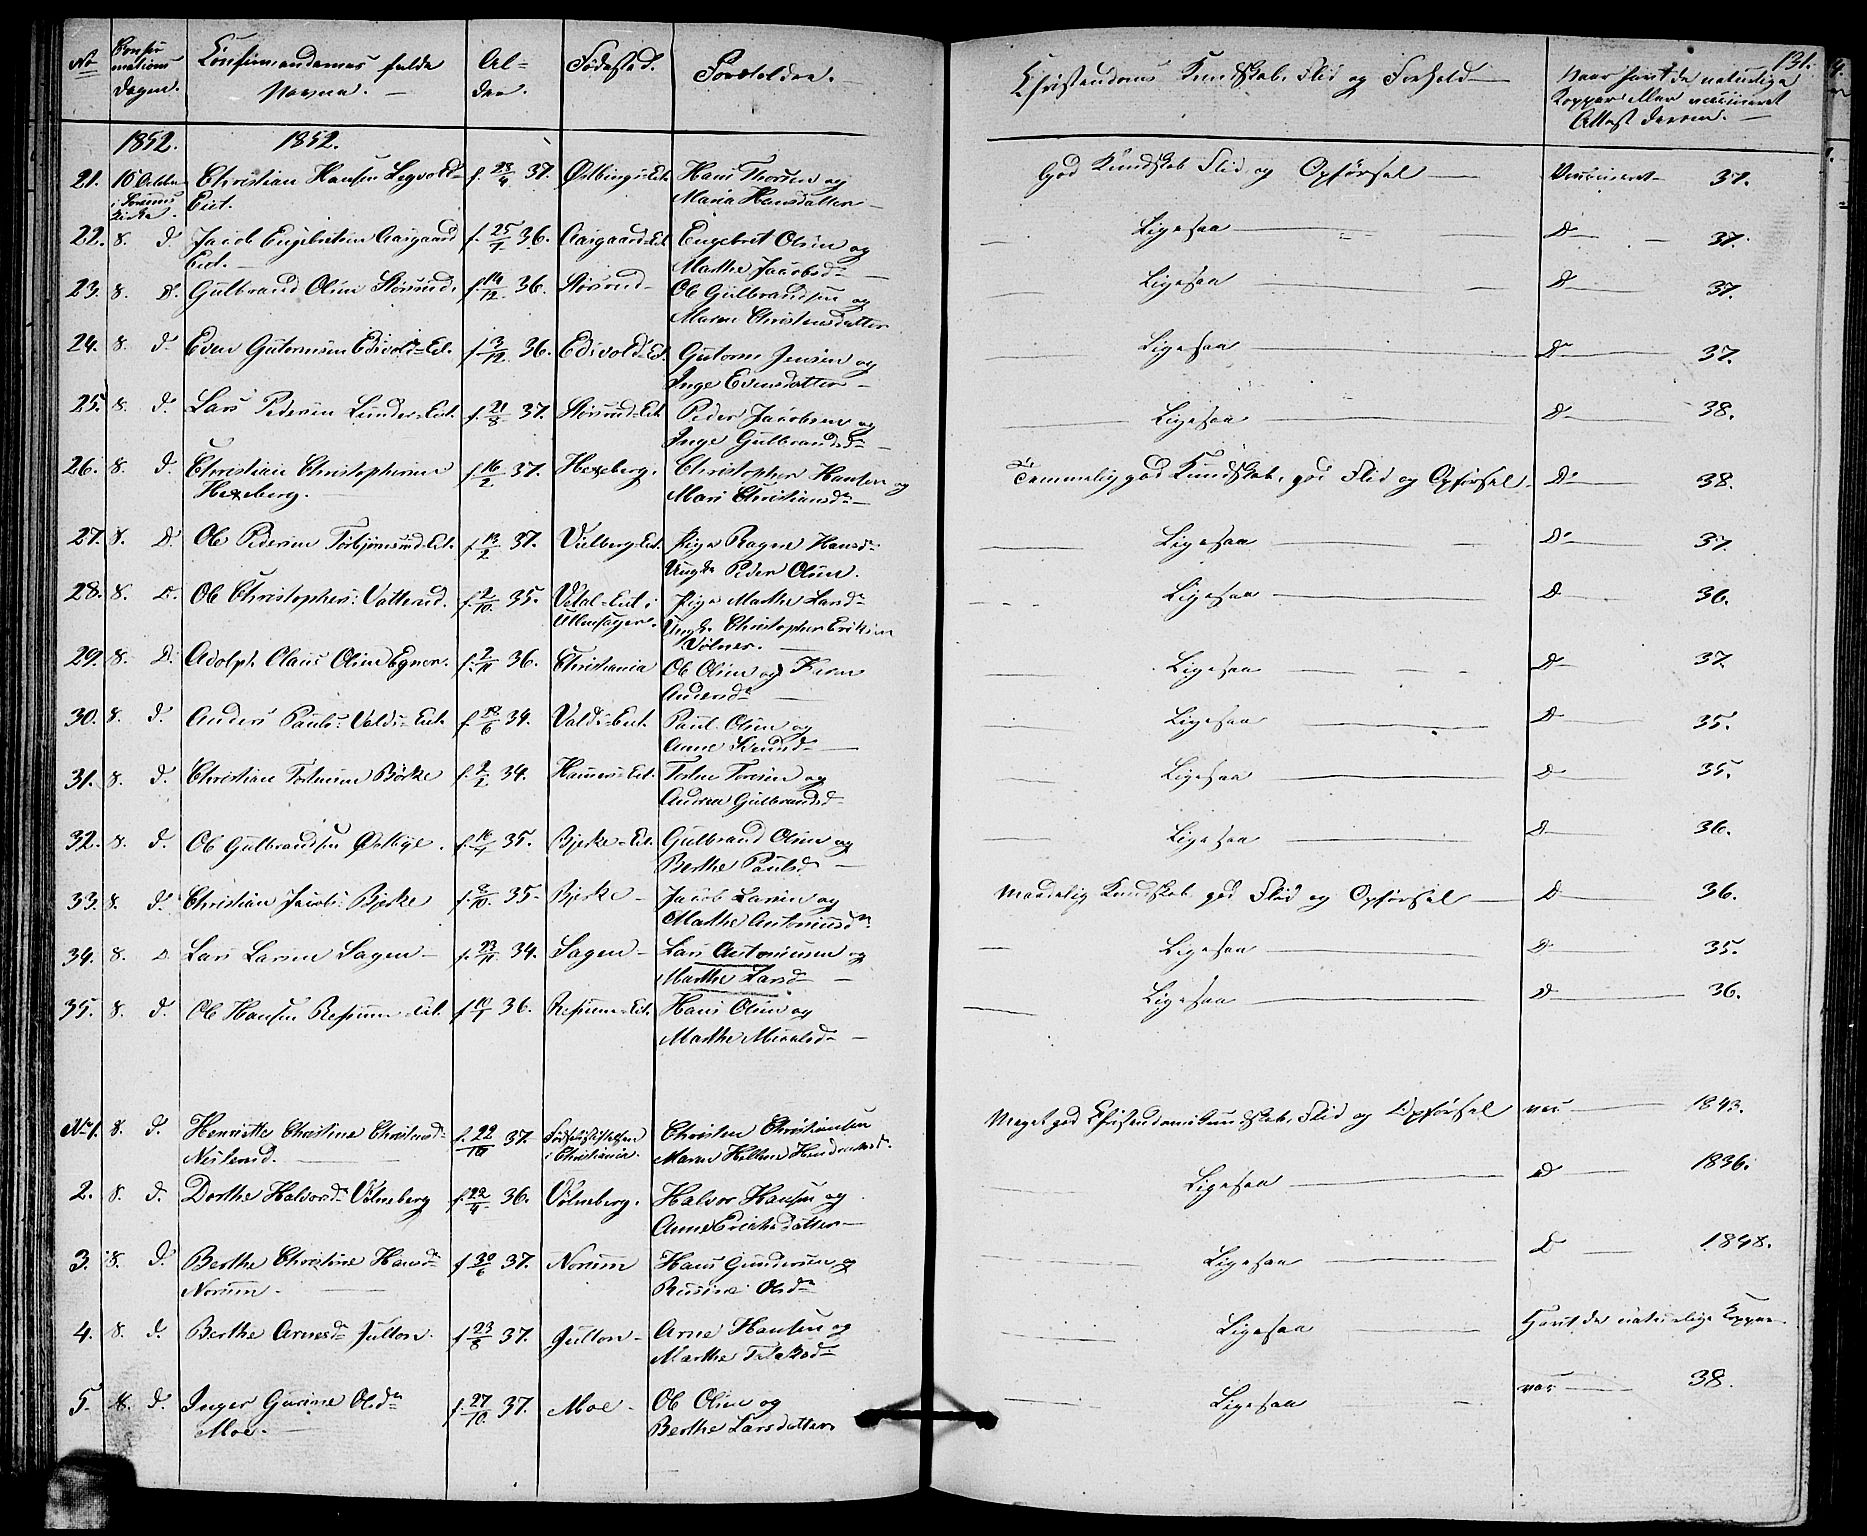 131.
No Confirmations Dagen. Confirmandernes fulde Navne. Alder. Fødested. Forældre. Christendoms Kundskab, Flid og Forhold Naar havt de naturlige Kopper eller vaccineret Attest derom.
1852. 1852.
21. 10 October i Sørums Kirke. Christian Hansen Eiet. f. 23/4 37. Hans Thorsen og Maria Hansdatter God Kundskab Flid og Opførsel Vaccineret 37.
22. 8. d. Jacob Engebretsen Aasgaard Eiet. f. 25/7 36. Aasgaard-Eiet Engebret Olsen og Marthe Jacobsd. Ligesaa D 37.
23. 8. d. Gulbrand Olsen Størsrud. f. 14/12 36. Størsrud Ole Gulbrandsen og Maren Christensdatter Ligesaa D 37.
24. 8. d. Even Gutormsen Edivold-Eiet. f. 3/12 36. Edivold-Eiet Gutorm Jensen og Inge Evensdatter Ligesaa D 37.
25. 8. d. Lars Pedersen Eiet. f. 21/8 37. Størsrud-Eiet Peder Jacobsen og Inge Gulbrandsd. Ligesaa D 38.
26. 8. d. Christian Christophersen Hexeberg. f. 16/2 37. Hexeberg. Christopher Hansen og Mari Christiansd. Temmelig god Kundskab, god Flid og Opførsel D 38.
27. 8. d. Ole Pedersen Torbjørnsrud-Eiet. f. 13/2 37. Vielberg-Eiet. Pige Ragne Hansd. Ungk. Peder Olsen. Ligesaa D 37
28. 8. d. Ole Christophers: Vatterud. f. 2/10 35. Vetal-Eiet i Ullensager. Pige Marthe Larsd. Ungk. Christopher Eriksen Vølner. Ligesaa D 36.
29. 8. d. Adolph Claus Olsen Egner. f. 2/11 36. Christiania Ole Olsen og Karen Andersd. Ligesaa D 37.
30. 8. d. Anders Pauls: Valdi-Eiet f. 19/6 34. Valdi-Eiet. Paul Olsen og Anne Ligesaa D 35.
31. 8. d. Christian Torstensen Børke f. 2/2 34. Hammer-Eiet. Torsten Toresen og Andrea Gulbrandsd. Ligesaa D 35.
32. 8. d. Ole Gulbrandsen Østbye. f. 16/4 35. Bjerke-Eiet. Gulbrand Olsen og Berthe Paulsd. Ligesaa D 36.
33. 8. d. Christian Jacobs: Bjerke f. 8/10 35. Bjerke Jacob Larsen og Marthe Antoniusd. Maadelig Kundskab god Flid og Opførsel D 36.
34. 8. d. Lars Larsen Sagen f. 23/11 34. Sagen Lars Antoniusen og Marthe Larsd. Ligesaa D 35.
35. 8. d. Ole Hansen Refsum-Eiet. f. 14/1 36. Refsum-Eiet. Hans Olsen og Marthe Ligesaa D 36.
No 1. 8. d. Henriette Christine Christensd. f. 22/10 37. Fødselsstiftelsen i Christiania. Christen Christiansen Maren Helene Meget god Christendomskundskab, Flid og Opførsel vac 1843.
2. 8. d. Dorthe Halvorsd. Vølneberg f. 22/4 36. Vølneberg. Halvor Hansen og Anne Erichsdatter Ligesaa D 1836.
3. 8. d. Berthe Christine Hansd. Norum f. 30/6 37. Norum Hans Gundersen og Rusine Olsd. Ligesaa D 1848.
4. 8. d. Berthe Arnesd. Julton. f. 23/8 37. Julton Arne Hansen og Marthe Ligesaa Havt de naturlige Kopper
5. 8. d. Inger Gurine Olsd. Moe. f. 27/10 37. Moe Ole Olsen og Berthe Larsdatter Ligesaa vac 38.